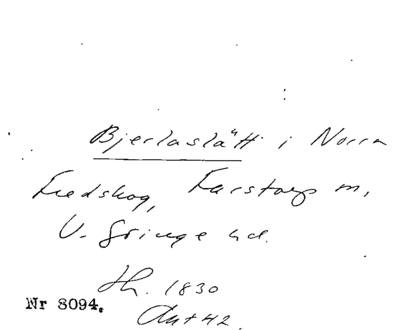 Bjerlaslätt i Norra
Fredskog, Farstorps sn,
V. Göinge hd.
Hh. 1830
Ant 42.
Nr 8094.